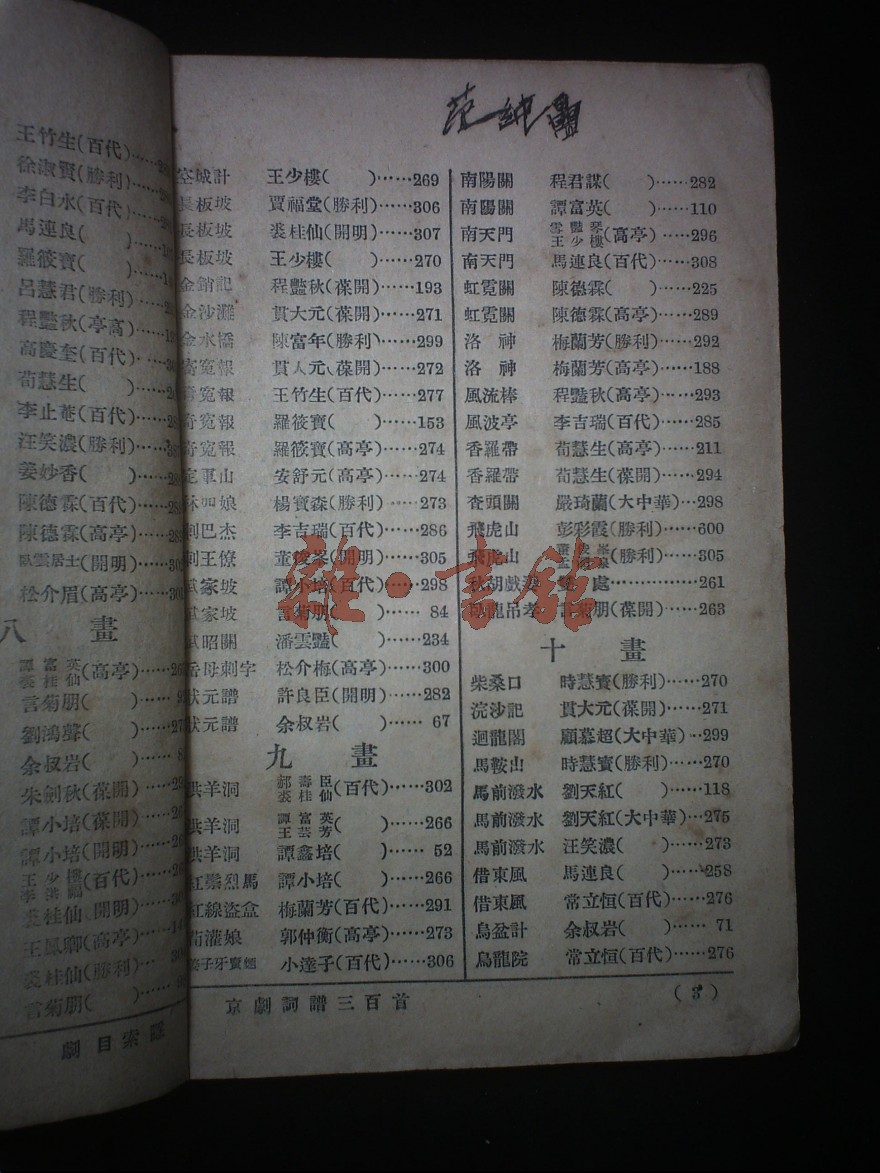 王竹生(百代)……
徐淑賢(勝利)……
李白水(百代)……
馬連良(　)……
羅筱寶(　)……
呂慧君(勝利)……
程豔秋(亭高)……
高慶奎(百代)……
荀慧生(　)……
李止菴(百代)……
汪笑濃(勝利)……
姜妙香(　)……
陳德霖(百代)……
陳德霖(高亭)……
臥雲居士(開明)……
松介眉(高亭)……
八　畫
譚富英 裘桂仙(高亭)……
言菊朋(　)……
劉鴻聲(　)……
余叔岩(　)……
朱劍秋(葆開)……
譚小培(葆開)……
譚小培(開明)……
王少樓(百代)……
裘桂仙(開明)……
王鳳卿(高亭)……
裘桂仙(勝利)……
言菊朋(　)……
劇目索隱
空城計　王少樓(　)……269
長板坡　賈福堂(勝利)……306
長板坡　裘桂仙(開明)……307
長板坡　王少樓(　)……270
金銷記　程豔秋(葆開)……193
金沙灘　貫大元(葆開)……271
金水橋　陳富年(勝利)……299
奇冤報　貫大元(葆開)……272
奇冤報　王竹生(百代)……277
奇冤報　羅筱寶(　)……153
奇冤報　羅筱寶(高亭)……274
定軍山　安舒元(高亭)……274
楊寶森(勝利)……273
刺巴杰　李吉瑞(百代)……286
刺王僚　董俊峯(開明)……305
武家坡　譚小培(百代)……298
武家坡　言菊朋(　)……84
武昭關　潘雲豔(　)……234
岳母刺字　松介梅(高亭)……300
狀元譜　許良臣(開明)……282
狀元譜　余叔岩(　)……67
九　畫
洪羊洞　郝壽臣 裘桂仙(百代)……302
洪羊洞　譚富英 王芸芳(　)……266
洪羊洞　譚鑫培(　)……52
紅鬃烈馬　譚小培(　)……266
紅線盜盒　梅蘭芳(百代)……291
荀灌娘　郭仲衡(高亭)……273
姜子牙賣麵　小達子(百代)……306
京劇詞譜三百首
南陽關　程君謀(　)……282
南陽關　譚富英(　)……110
南天門　雪豔琴 王少樓(高亭)……296
南天門　馬連良(百代)……308
虹霓關　陳德霖(　)……225
虹霓關　陳德霖(高亭)……289
洛　神　梅蘭芳(勝利)……292
洛　神　梅蘭芳(高亭)……188
風流棒　程豔秋(高亭)……293
風波亭　李吉瑞(百代)……285
香羅帶　荀慧生(高亭)……211
香羅帶　荀慧生(葆開)……294
查頭關　嚴琦蘭(大中華)…298
飛虎山　彭彩霞(勝利)……600
飛虎山　(勝利)……305
秋胡戲妻　處…………261
臥龍吊孝　言菊朋(葆開)……263
十　畫
柴桑口　時慧寶(勝利)……270
浣沙記　貫大元(葆開)……271
迴龍閣　顧慕超(大中華)…299
馬鞍山　時慧寶(勝利)……270
馬前潑水　劉天紅(　)……118
馬前潑水　劉天紅(大中華)…275
馬前潑水　汪笑濃(　)……273
借東風　馬連良(　)……258
借東風　常立恒(百代)……276
烏盆計　余叔岩(　)……71
烏龍院　常立恒(百代)……276
(3)
雜·書館